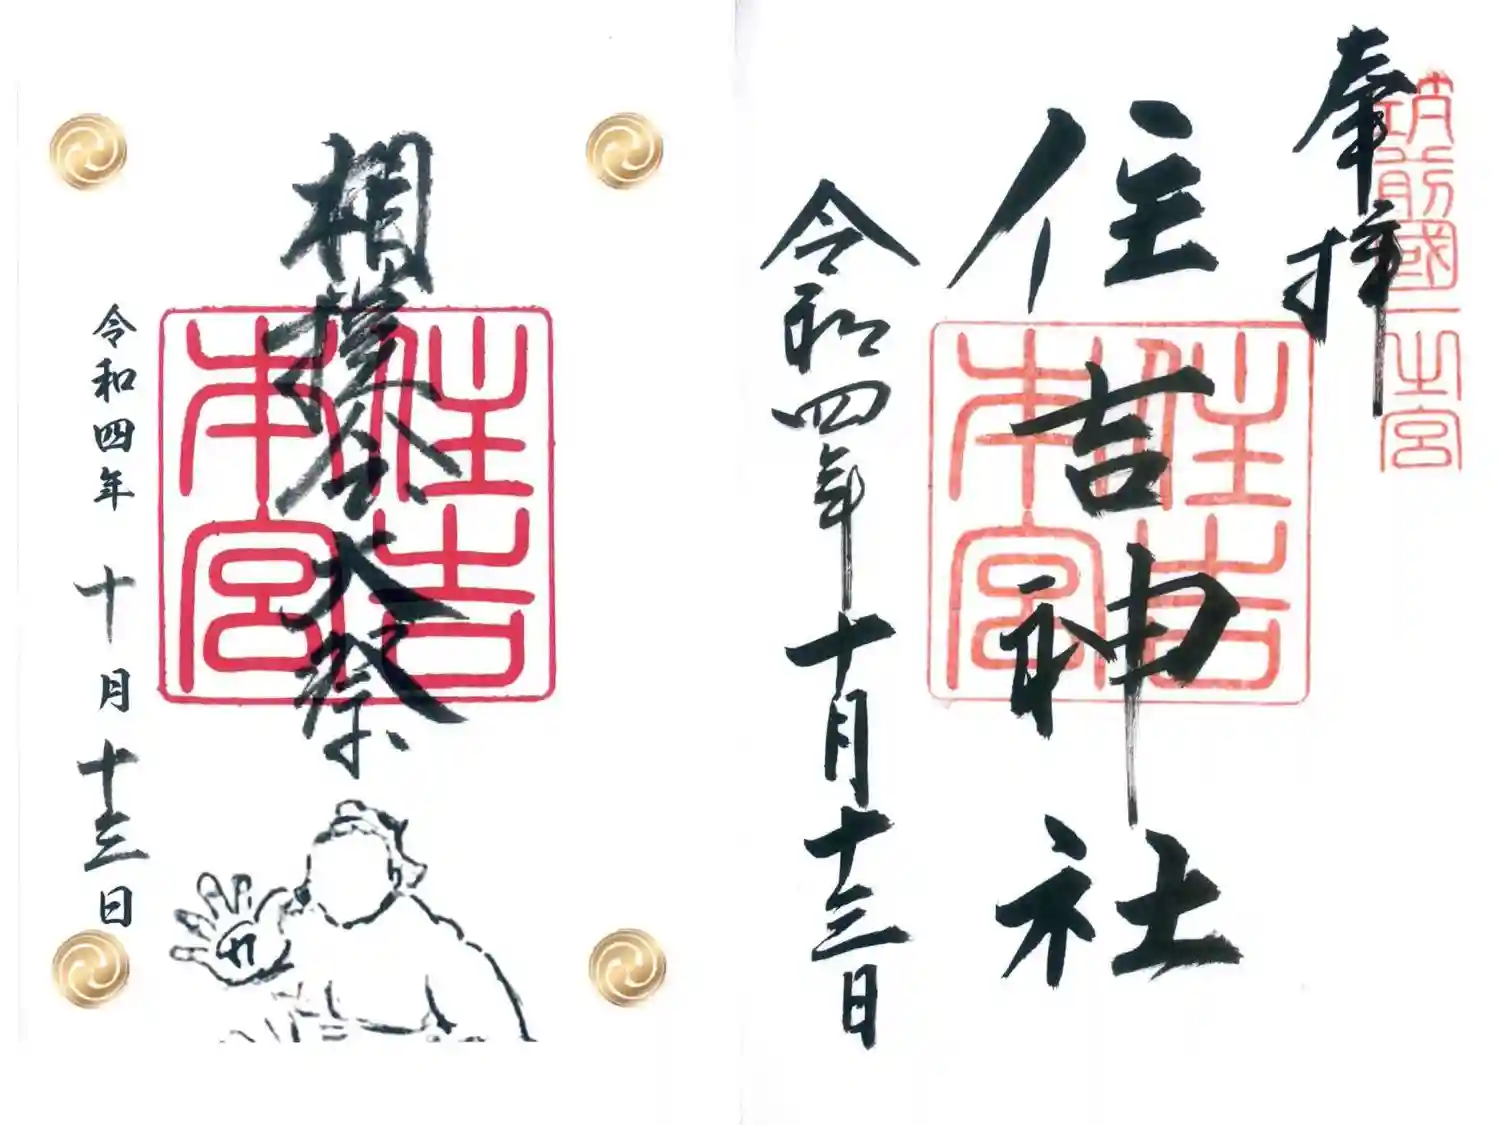 奉拝
筑前國一之宮
住吉神社
住吉本宮
令和四年十月十三日
相撲会大祭
住吉本宮
令和四年 十月十三日
力